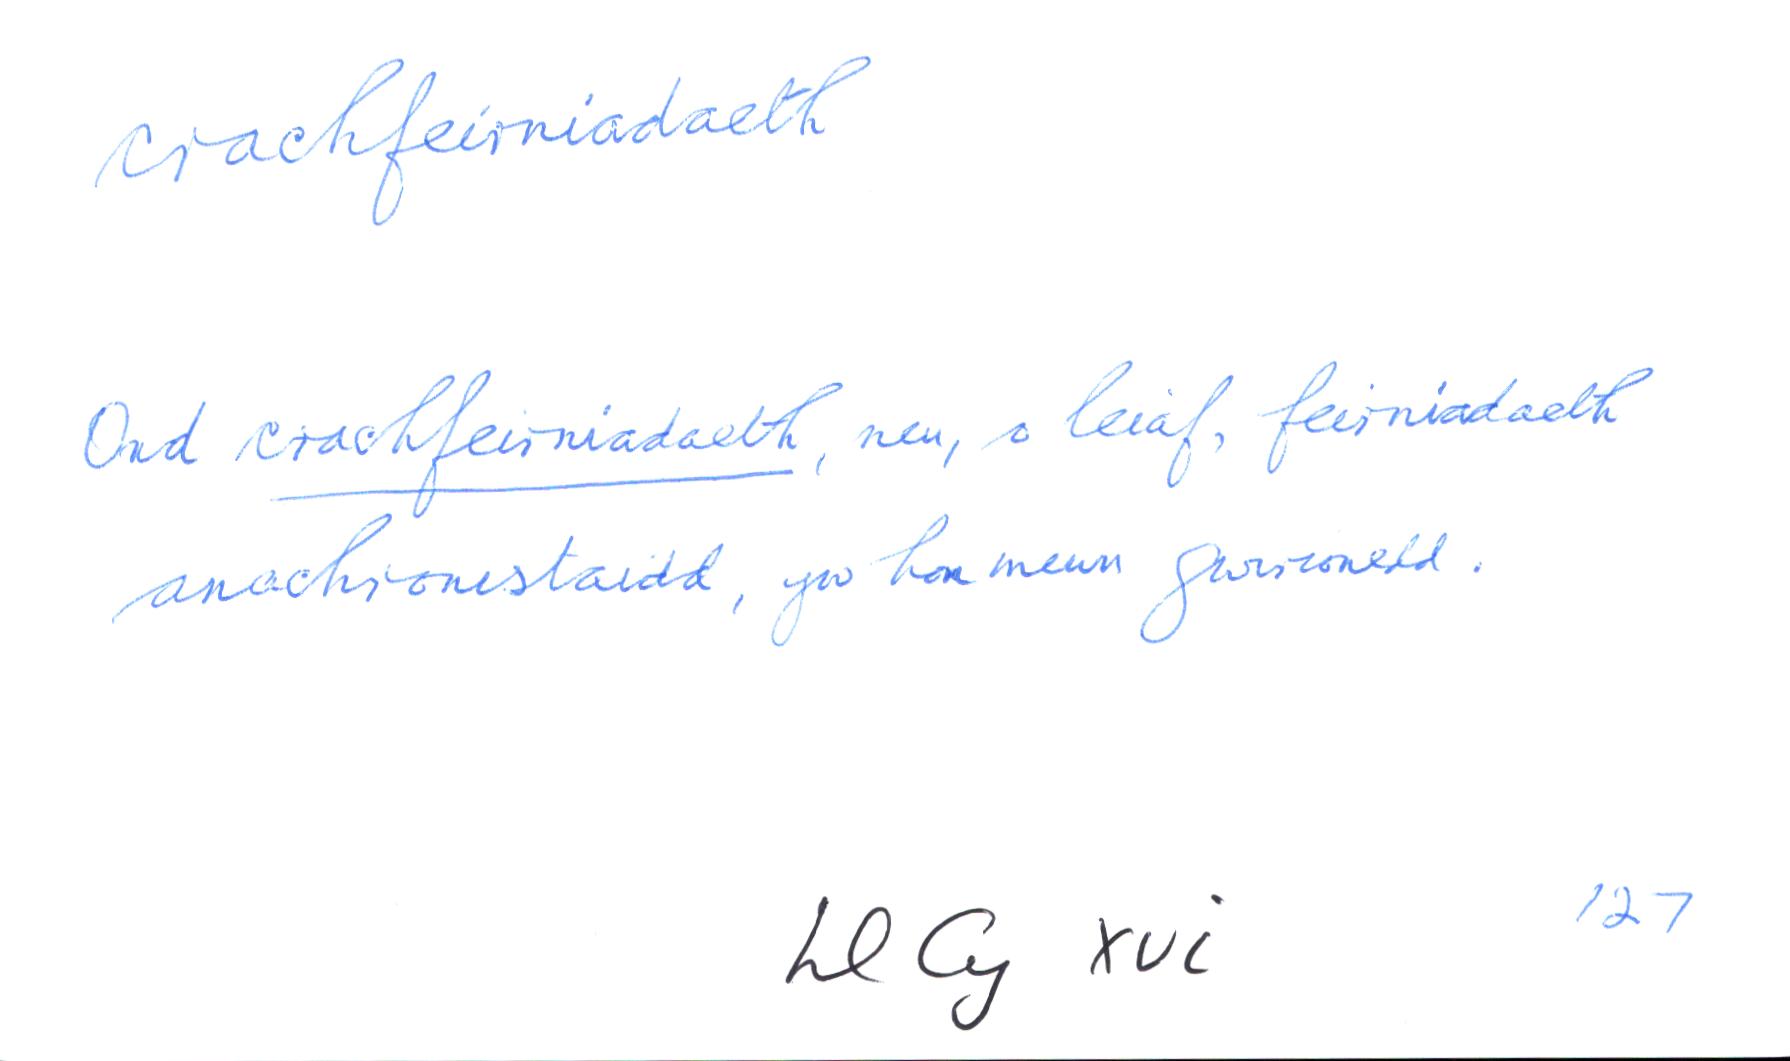 crachfeirniadaeth
Ond crachfeirniadaeth, neu, o leiaf, feirniadaeth
anachronistaidd, yw hon mewn gwirionedd.
127
Ll Cy xvi